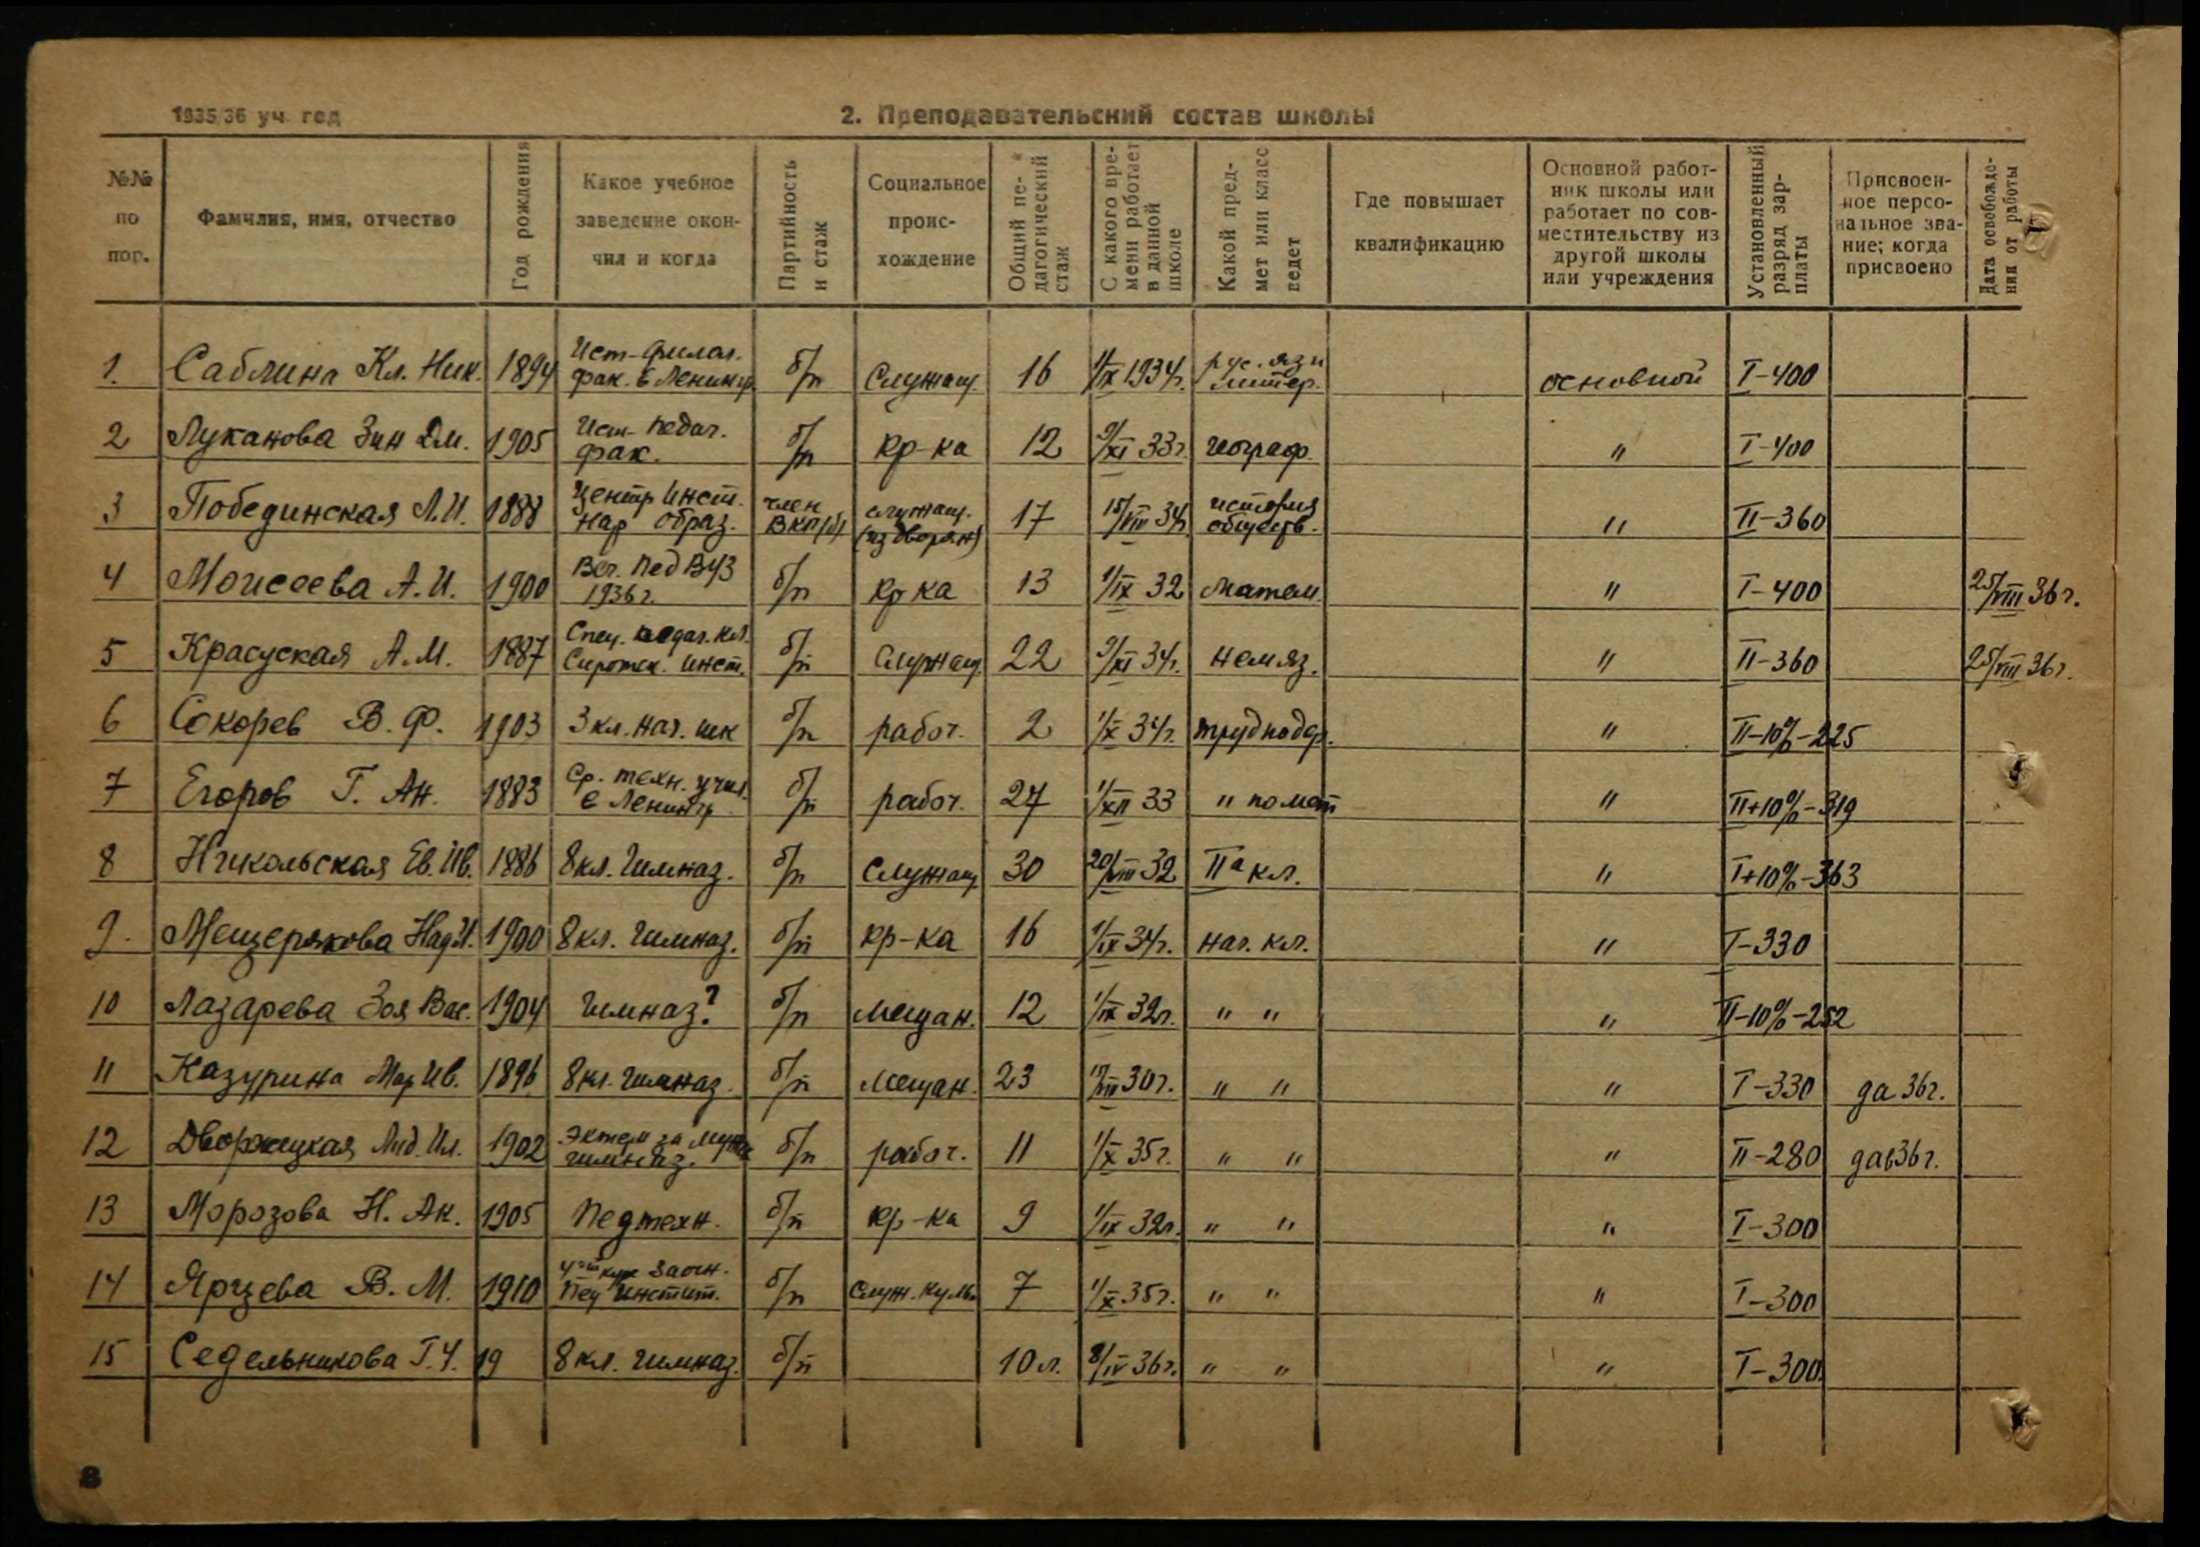 1935/36 уч. год
2. Преподавательский состав школы
№№ по пор.
Фамилия, имя, отчество
Год рождения
Какое учебное заведение окончил и когда
Партийность и стаж
Социальное происхождение
Общий педагогический стаж
С какого времени работает в данной школе
Какой предмет или класс ведет
Где повышает квалификацию
Основной работник школы или работает по совместительству из другой школы или учреждения
Установленный разряд зарплаты
Присвоенное персональное звание; когда присвоено
Дата освобождения от работы
1. Саблина Кл. Ник. 1894 Ист-филол. фак. в Ленингр. б/п Служащ. 16 1/IX 1934г. рус. яз и литер. основной I-400
2 Луканова Зин Дм. 1905 Ист- педаг. фак. б/п кр-ка 12 9/XI 33г. географ. " I-400
3 Побединская Л.И. 1888 Центр Инст. Нар образ. член ВКП(б) служащ. (из дворян) 17 15/VIII 34 история обществ. " II-360
4 Моисеева А.И. 1900 Веч. Пед ВУЗ 1936г. б/п кр ка 13 1/IX 32 матем. " I-400 25/VIII 36г.
5 Красуская А.М. 1887 Спец. педаг. кл. Сиротск. Инст. б/п Служащ. 22 9/XI 34г. нем яз. " II-360 25/VIII 36г.
6 Сокорев В. Ф. 1903 3 кл. нач. шк б/п рабоч. 2 1/X 34г. труд по д " II-10%-225
7 Егоров Г. Ан. 1883 Ср. техн. учил. в Ленингр б/п рабоч. 27 1/XII 33 " по мет " II+10%-319
8 Никольская Ев. Ив. 1886 8 кл. Гимназ. б/п Служащ 30 20/VIII 32 IIа кл. " I+10%-363
9. Мещерякова Над И. 1900 8 кл. гимназ. б/п кр-ка 16 1/IX 34г. нач. кл. " I-330
10 Лазарева Зоя Вас. 1904 Гимназ? б/п мещан. 12 1/IX 32г. " " " II-10%-252
11 Казурина Мар Ив. 1896 8 кл. гимназ. б/п мещан. 23 /VIII 30г. " " " I-330 да 36г.
12 Дворжицкая Лид. Ил. 1902 Экстем за гимназ. б/п рабоч. 11 1/X 35г. " " " II-280 да в 36г.
13 Морозова Н. Ак. 1905 Педтехн. б/п кр-ка 9 1/IX 32г. " " " I-300
14 Ярцева В. М. 1910 Заочн. Пед Институт. б/п Служ. культ 7 1/X 35г. " " " I-300
15 Седельникова Г.Ч. 19 8 кл. гимназ. б/п 10 л. 8/IV 36г. " " " I-300
8